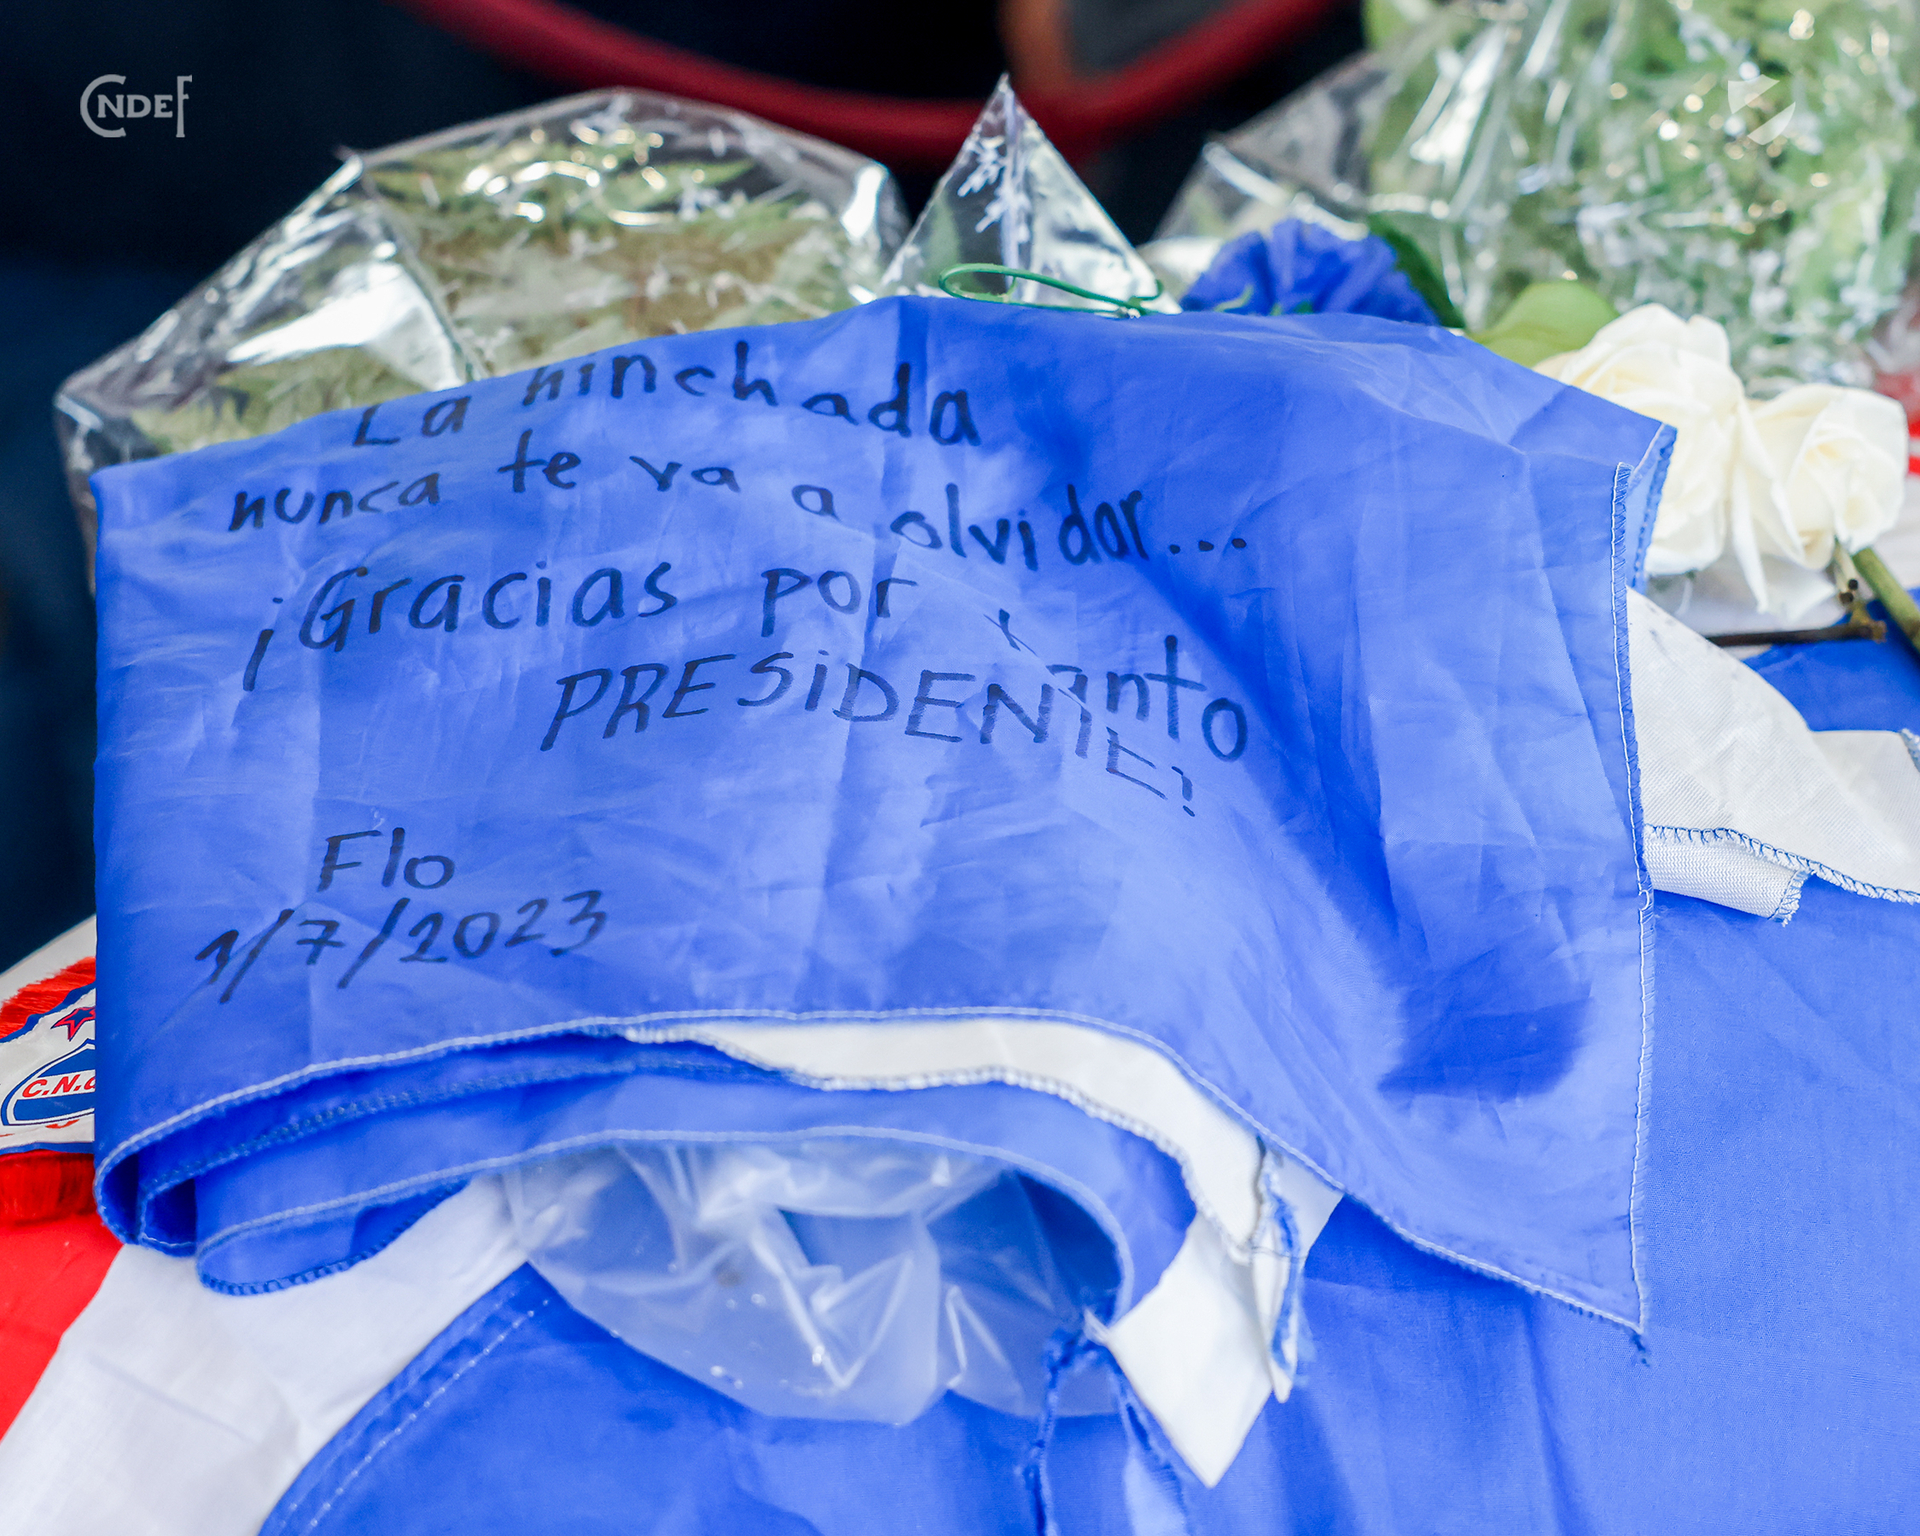 CNDEF
La hinchada
nunca te va a olvidar...
¡Gracias por tanto
PRESiDENTE!
Flo
1/7/2023
C.N.d